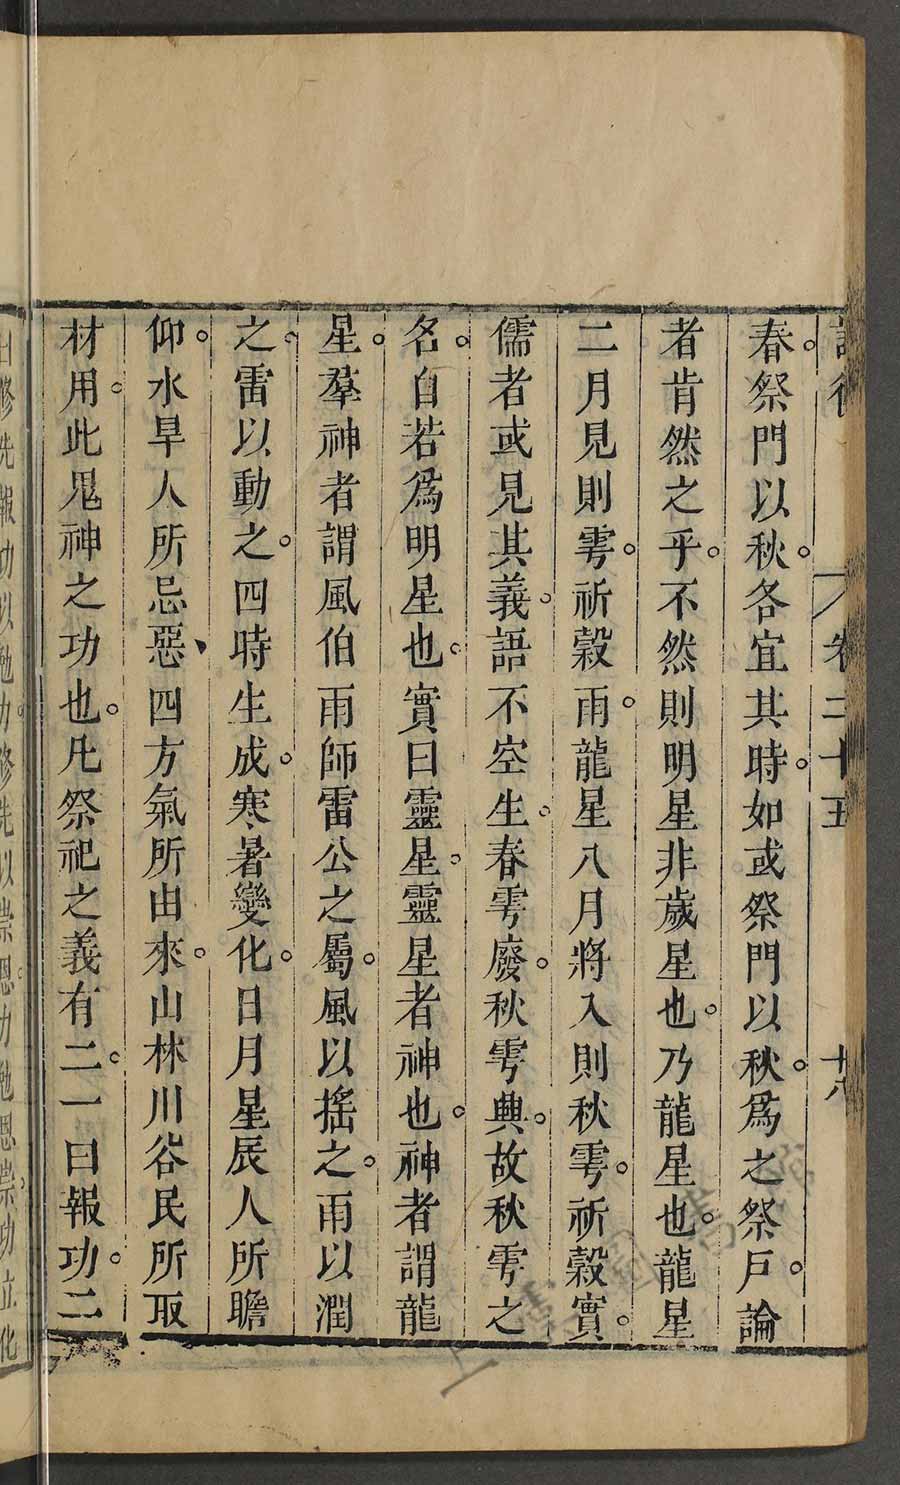 卷二十五　十八
春。祭門以秋。各宜其時。如或祭門以秋。爲之祭戶。論
者肯然之乎。不然則明星非歲星也。乃龍星也。龍星
二月見則雩。祈穀雨。龍星八月將入則秋雩。祈穀實。
儒者或見其義。語不空生。春雩廢。秋雩興。故秋雩之
名。自若爲明星也。實曰靈星。靈星者神也。神者謂龍
星。羣神者謂風伯雨師雷公之屬。風以搖之。雨以潤
之。雷以動之。四時生成。寒暑變化。日月星辰人所瞻
仰。水旱人所忌惡、四方氣所由來。山林川谷民所取
材用。此鬼神之功也。凡祭祀之義有二。一曰報功。二
曰修先報功以勉力修先以崇恩力勉恩崇功立化